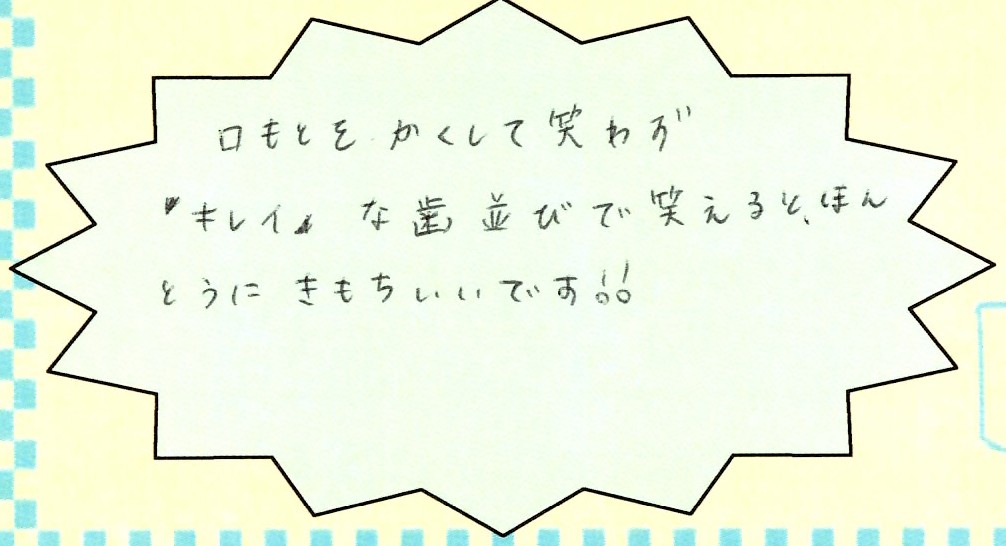 口もとを かくして 笑わず
『キレイ』な歯並びで笑えると、ほん
とうに きもちいいです!!